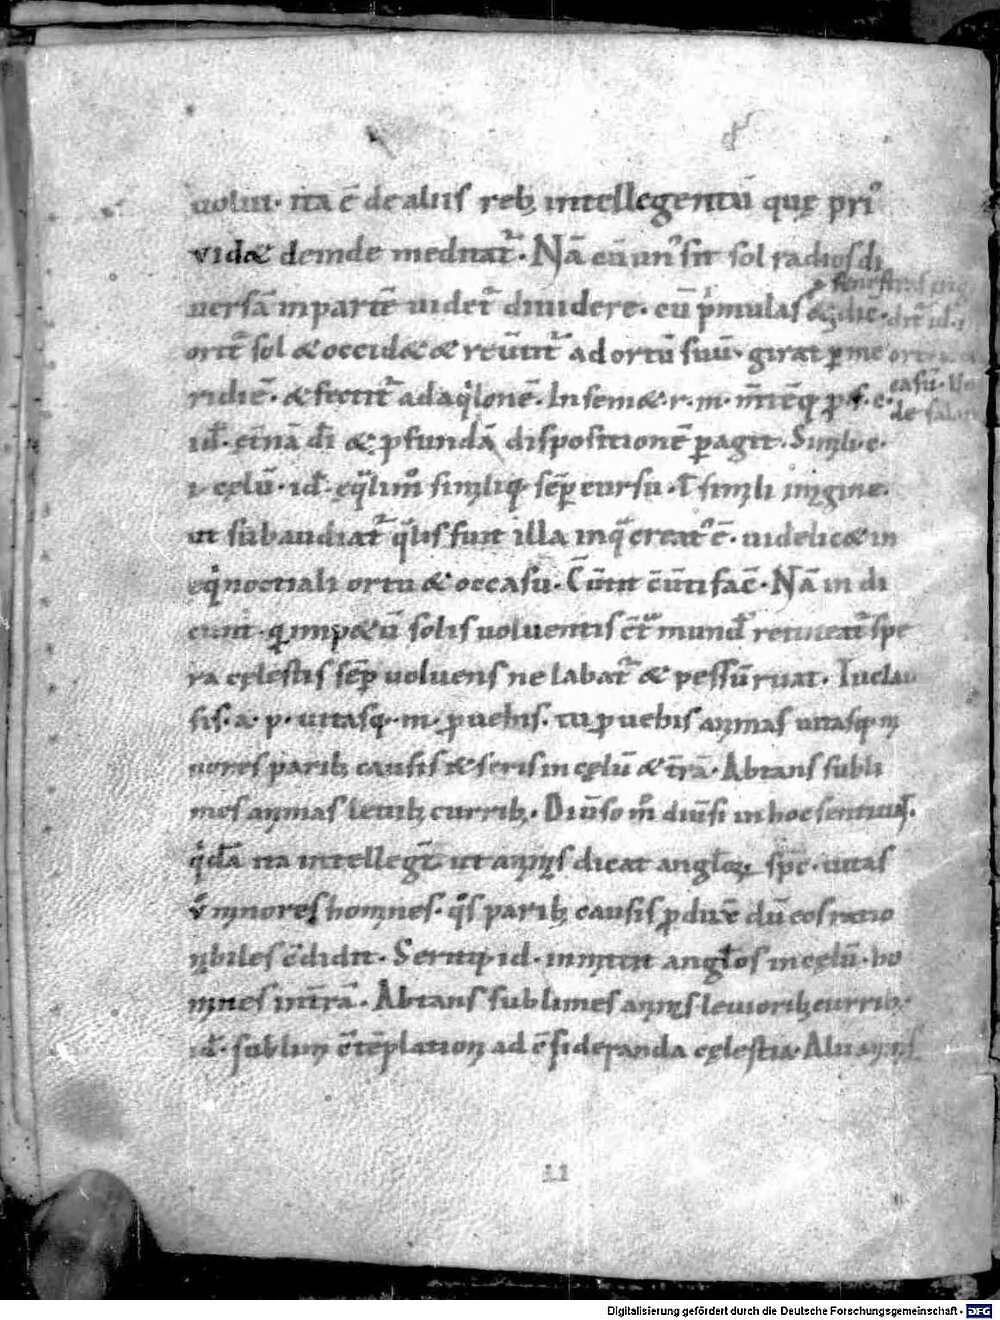 uoluit· ita ē de aliis reb; intellegentū quę pri᷒
videt deinde meditat᷑· Nā cū un᷒ sit sol radios di
uersā in partē uidet᷑ diuidere· cū p̄ multas
fenestras
orit᷑ sol & occidet & reūtit᷑ ad ortū suū· girat ꝑ me
ridiē· & flectit᷑ ad aqⁱlonē· In semet r· m·
id̄· ęt̄nā dī & ꝓfundā dispositionē ꝑagit· Simili· c·
i· cęlū· id̄· ęqᵃlim̊ similiq; sēꝑ cursu· ł simili imagine·
ut subaudiat᷑ qᵃlis fuit illa in qᵃ creat᷒ ē· uidelicet in
eqⁱnoctiali ortu & occasu· Nā in di
solis uoluentis mund retineat᷑ spe
ra cęlestis sēꝑ uoluens ne labat᷑ & pessū ruat· Tu cau
sis· a· p· uitasq·· m· ꝓuehis· tu ꝓuehis animas uitasq; mi
nores parib; causis & seris in cęlū & t̄rā· Aptans subli
mes animas leuib; currib;· Diūso m̊ diūsi in hoc sentiunt·
qⁱdā ita intellegt̄ ut animas dicat angloꝝ sp̄c· uitas
v̊ minores homines· qⁱs parib; causis ꝓduxē dū eos ratio
nabiles c̄didit· Seruisq; id· in mittit anglos in cęlū· ho
mines in t̄rā· Aptans sublimes animas leuiorib; currib;·
id̄· sublimi c̄tēplationi ad c̄sideranda cęlestia· Alii animas
11
Digitalisierung gefördert durch die Deutsche Forschungsgemeinschaft - DFG